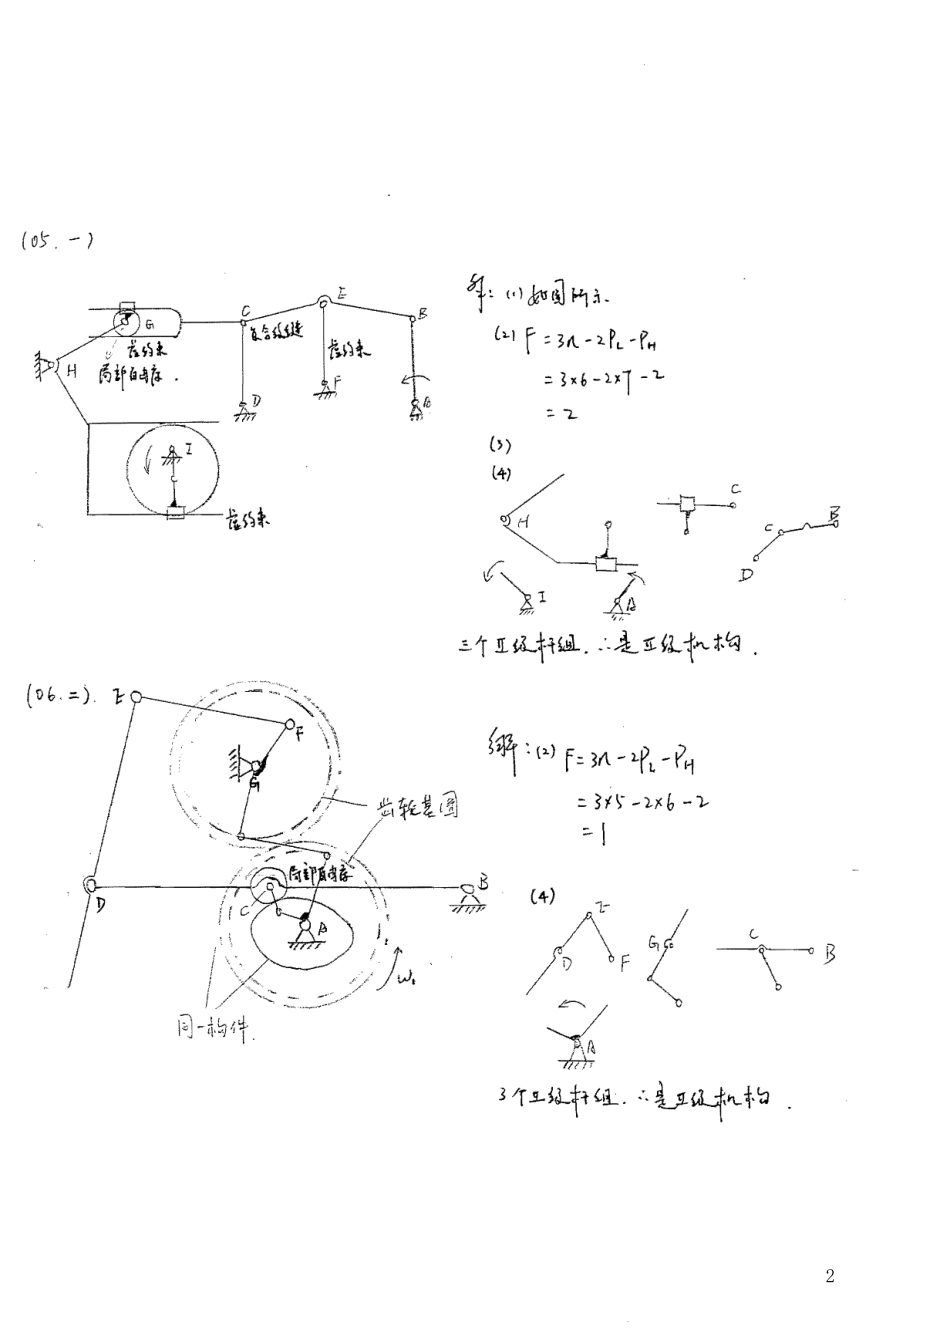 (05.一)
E
C
B
G
复合铰链
虚约束
虚约束
H
局部自由度.
F
D
A
I
虚约束
解: (1) 如图所示.
(2) F = 3n - 2PL - PH
= 3×6 - 2×7 - 2
= 2
(3)
(4)
C
H
C
B
D
I
A
三个Ⅱ级杆组. ∴是Ⅱ级机构.
(06.二). E
F
G
齿轮基圆
局部自由度
D
C
B
A
ω1
同一构件.
解: (2) F = 3n - 2PL - PH
= 3×5 - 2×6 - 2
= 1
(4)
E
D
F
G
C
B
A
3个Ⅱ级杆组. ∴是Ⅱ级机构.
2